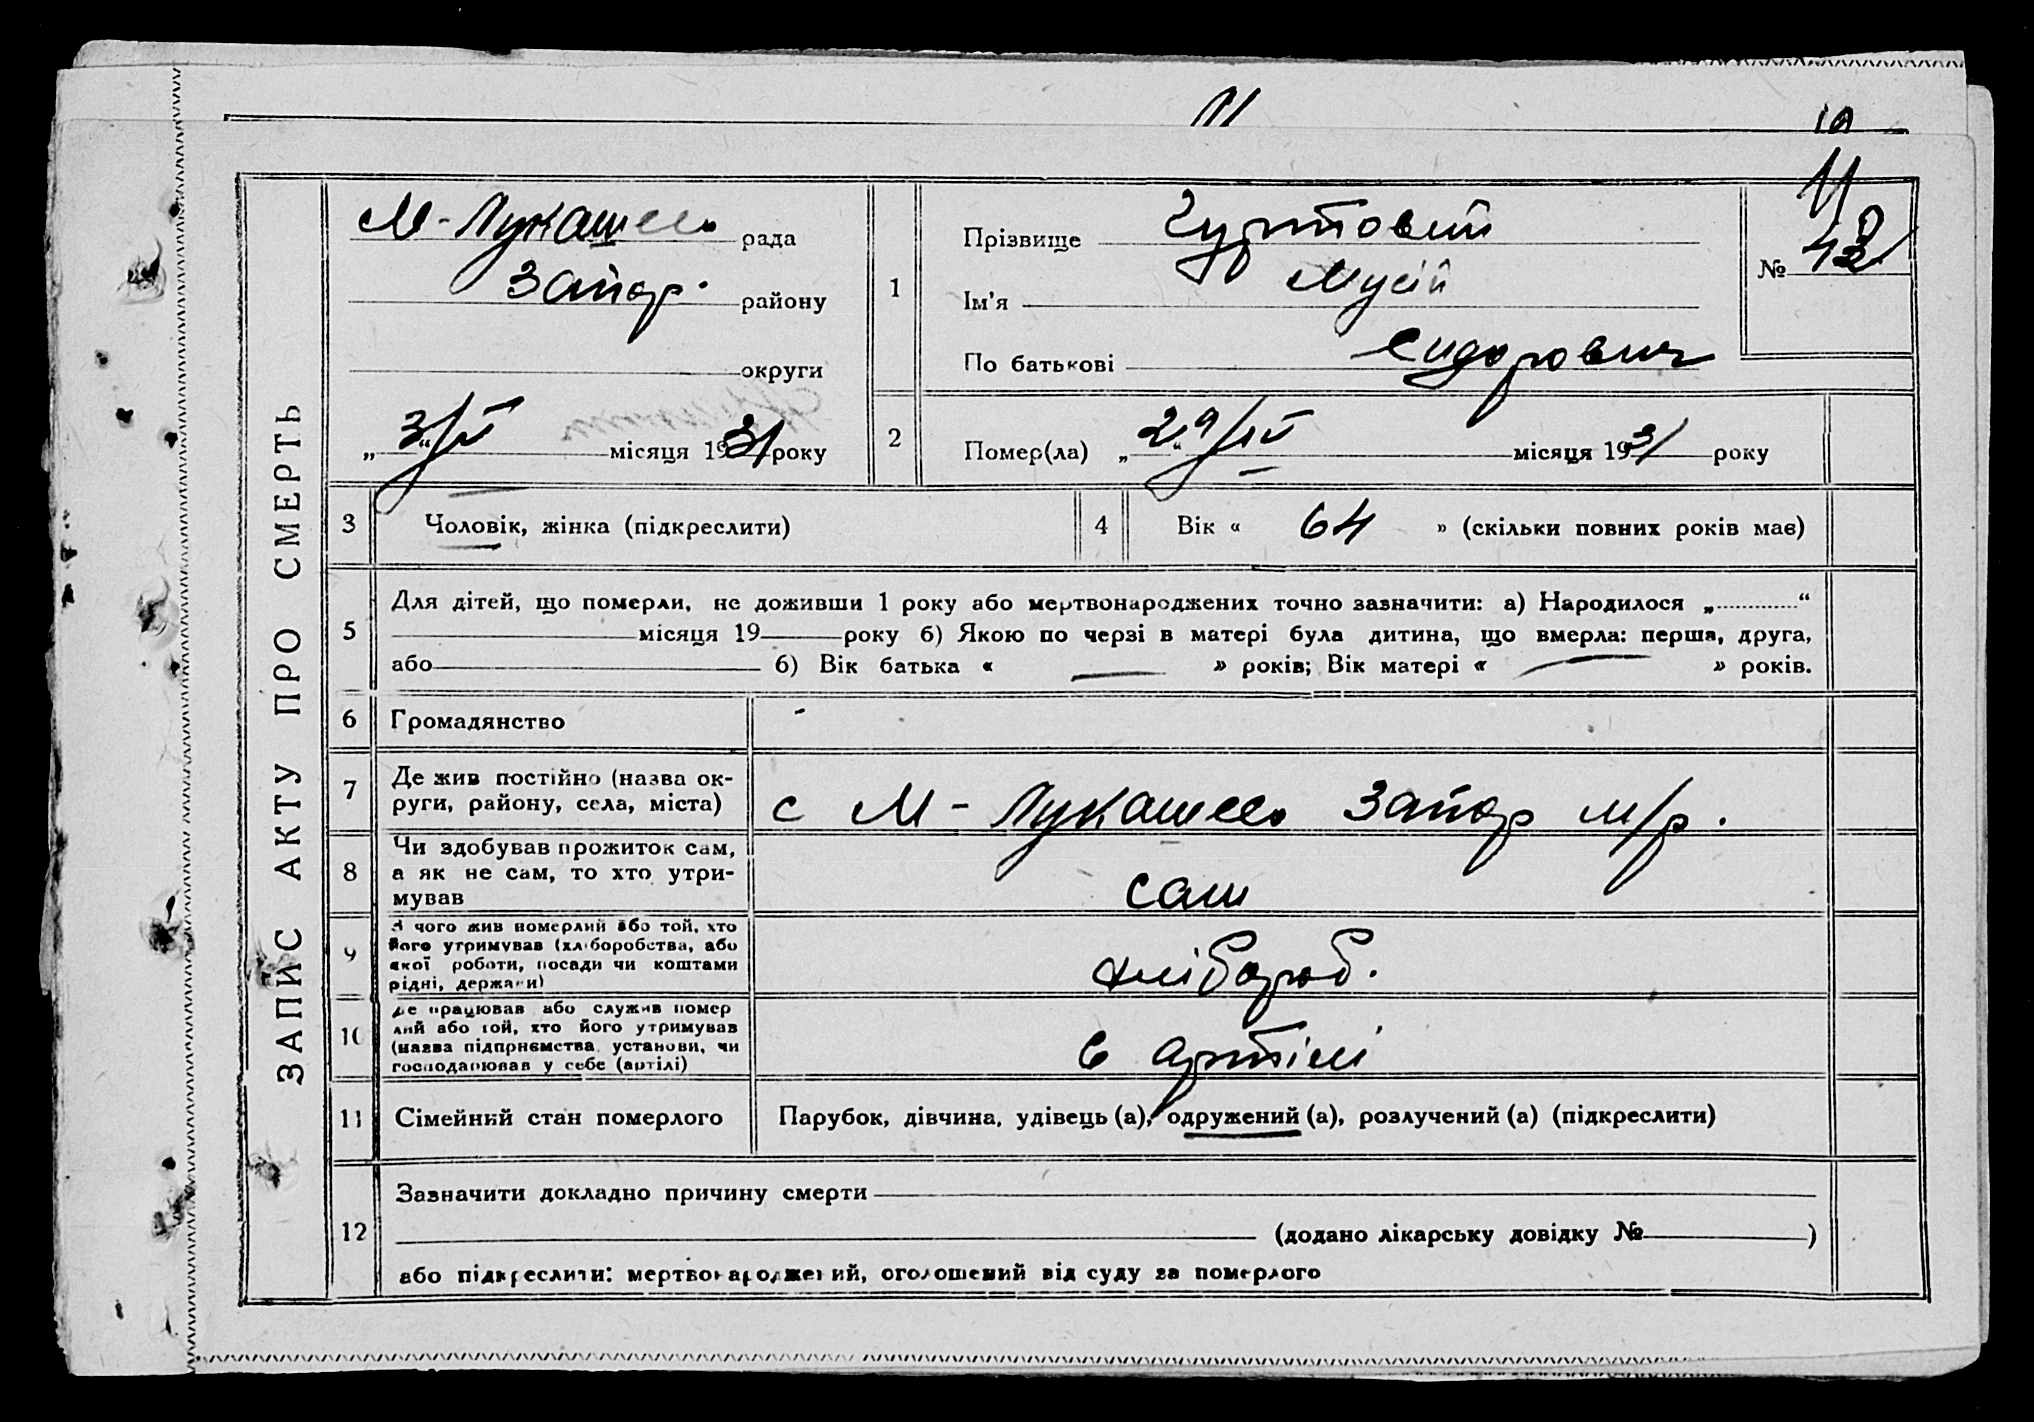 ЗАПИС АКТУ ПРО СМЕРТЬ
11
М-Лукашев рада
Запор. району
округи
„3“/V місяця 1931 року
1 Прізвище Гуртовий
Ім'я Мусій
По батькові Сидорович
11
№
2 Помер(ла) „29“/IV місяця 1931 року
3 Чоловік, жінка (підкреслити)
4 Вік « 64 » (скільки повних років має)
5 Для дітей, що померли, не доживши 1 року або мертвонароджених точно зазначити: а) Народилося „ “
місяця 19 року б) Якою по черзі в матері була дитина, що вмерла: перша, друга,
або б) Вік батька « — » років; Вік матері « — » років.
6 Громадянство -
7 Де жив постійно (назва ок-
руги, району, села, міста) с М-Лукашев Запор м/р.
8 Чи здобував прожиток сам,
а як не сам, то хто утри-
мував сам
9 З чого жив померлий або той, хто
його утримував (хліборобства, або
якої роботи, посади чи коштами
рідні, держави) хлібороб.
10 Де працював або служив помер
лий або той, хто його утримував
(назва підприємства установи, чи
господарював у себе (артілі) в артілі
11 Сімейний стан померлого Парубок, дівчина, удівець (а), одружений (а), розлучений (а) (підкреслити)
12 Зазначити докладно причину смерти
(додано лікарську довідку № )
або підкреслити: мертвонароджений, оголошений від суду за померлого